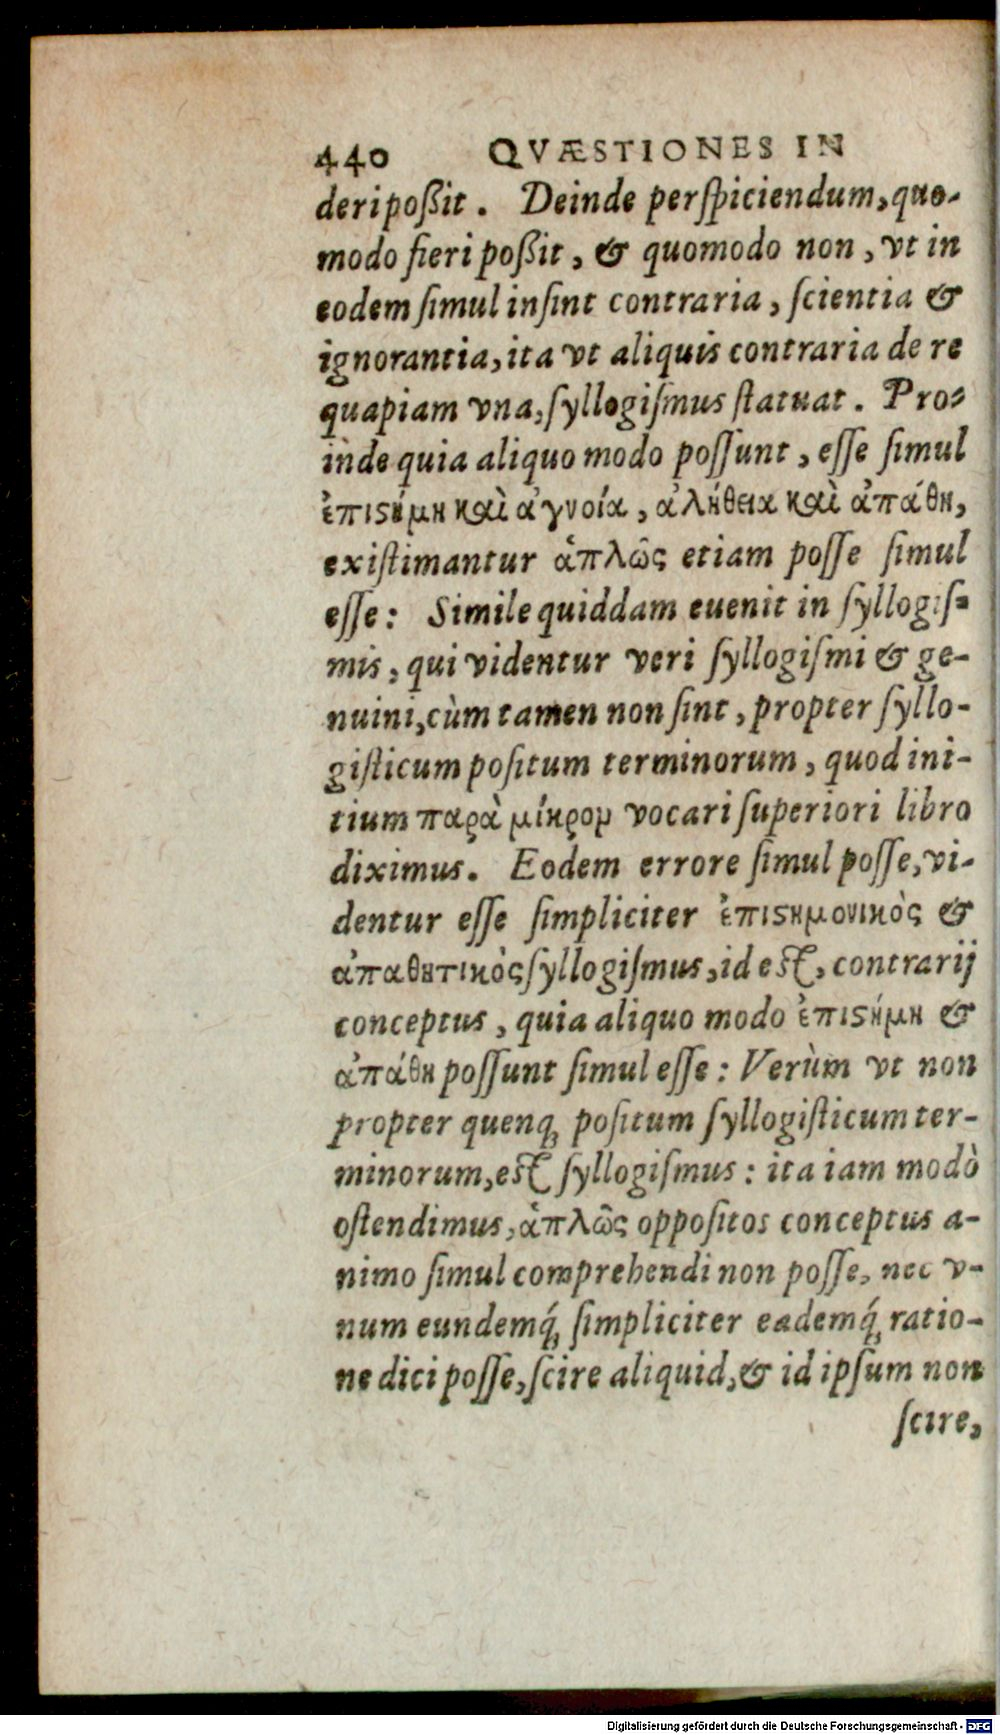 440 QVÆSTIONES IN
deri poßit. Deinde perſpiciendum, quo-
modo fieri poßit, & quomodo non, vt in
eodem ſimul inſint contraria, ſcientia &
ignorantia, ita vt aliquis contraria de re
quapiam vna, ſyllogiſmus ſtatuat. Pro-
inde quia aliquo modo poſſunt, eſſe ſimul
ἐπιϛήμη καὶ ἀγνοία, ἀλήθεια καὶ ἀπάθη,
exiſtimantur ἁπλῶς etiam poſſe ſimul
eſſe: Simile quiddam euenit in ſyllogiſ-
mis, qui videntur veri ſyllogiſmi & ge-
nuini, cùm tamen non ſint, propter ſyllo-
giſticum poſitum terminorum, quod ini-
tium παρὰ μίκρομ vocari ſuperiori libro
diximus. Eodem errore ſimul poſſe, vi-
dentur eſſe ſimpliciter ἐπιϛημονικὸς &
ἀπαθητικὸς ſyllogiſmus, id eſt, contrarij
conceptus, quia aliquo modo ἐπιϛήμη &
ἀπάθη poſſunt ſimul eſſe: Verùm vt non
propter quenq; poſitum ſyllogiſticum ter-
minorum, eſt ſyllogiſmus: ita iam modò
oſtendimus, ἁπλῶς oppoſitos conceptus a-
nimo ſimul comprehendi non poſſe, nec v-
num eundemq́; ſimpliciter eademq́; ratio-
ne dici poſſe, ſcire aliquid, & id ipſum non
ſcire,
Digitalisierung gefördert durch die Deutsche Forschungsgemeinschaft - DFG